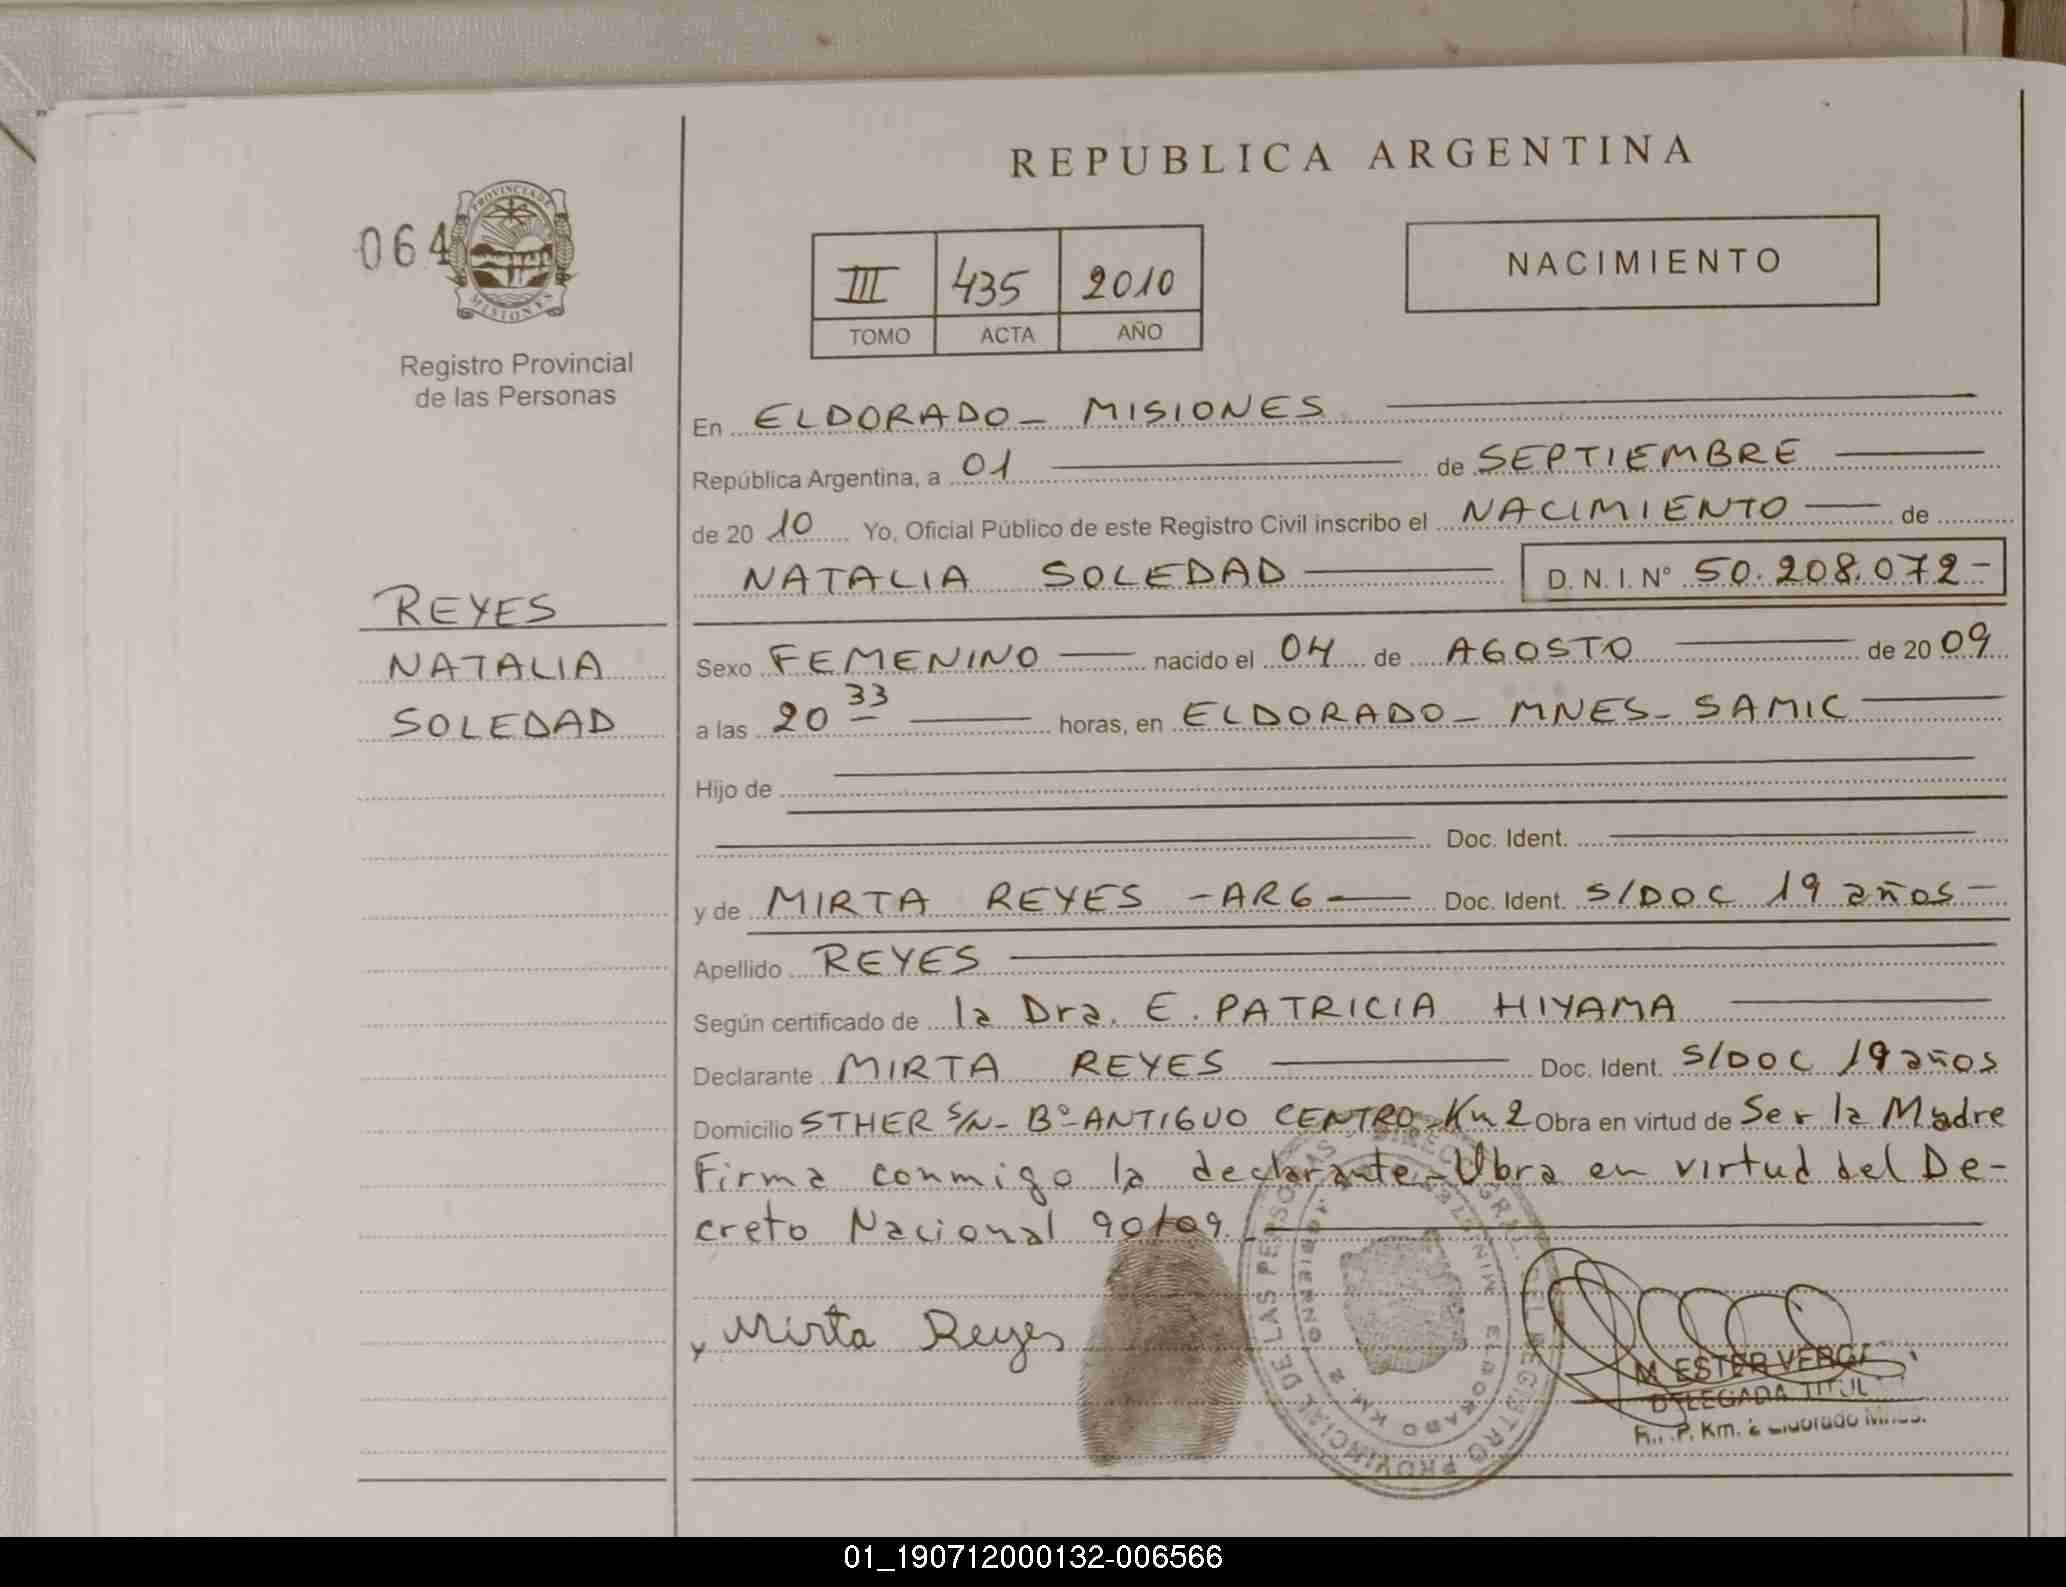 REPUBLICA ARGENTINA
064
PROVINCIA DE
MISIONES
Registro Provincial
de las Personas
III 435 2010
TOMO ACTA AÑO
NACIMIENTO
REYES
NATALIA
SOLEDAD
En ELDORADO - MISIONES
República Argentina, a 01 de SEPTIEMBRE
de 20 10 Yo, Oficial Público de este Registro Civil inscribo el NACIMIENTO de
NATALIA SOLEDAD D.N.I.Nº 50.208.072-
Sexo FEMENINO nacido el 04 de AGOSTO de 20 09
a las 20 33 horas, en ELDORADO - MNES - SAMIC
Hijo de
Doc. Ident.
y de MIRTA REYES - ARG - Doc. Ident. S/DOC 19 años -
Apellido REYES
Según certificado de la Dra. E. PATRICIA HIYAMA
Declarante MIRTA REYES Doc. Ident. S/DOC 19 años
Domicilio STHER S/N - Bº ANTIGUO CENTRO - Km 2 Obra en virtud de Ser la Madre
Firma conmigo la declarante - Obra en virtud del De-
creto Nacional 90/09.
Mirta Reyes
PROVINCIAL DE LAS PERSONAS
ELDORADO KM. 2
M. ESTER
DELEGADA
Km. 2 Eldorado Mnes.
01_190712000132-006566